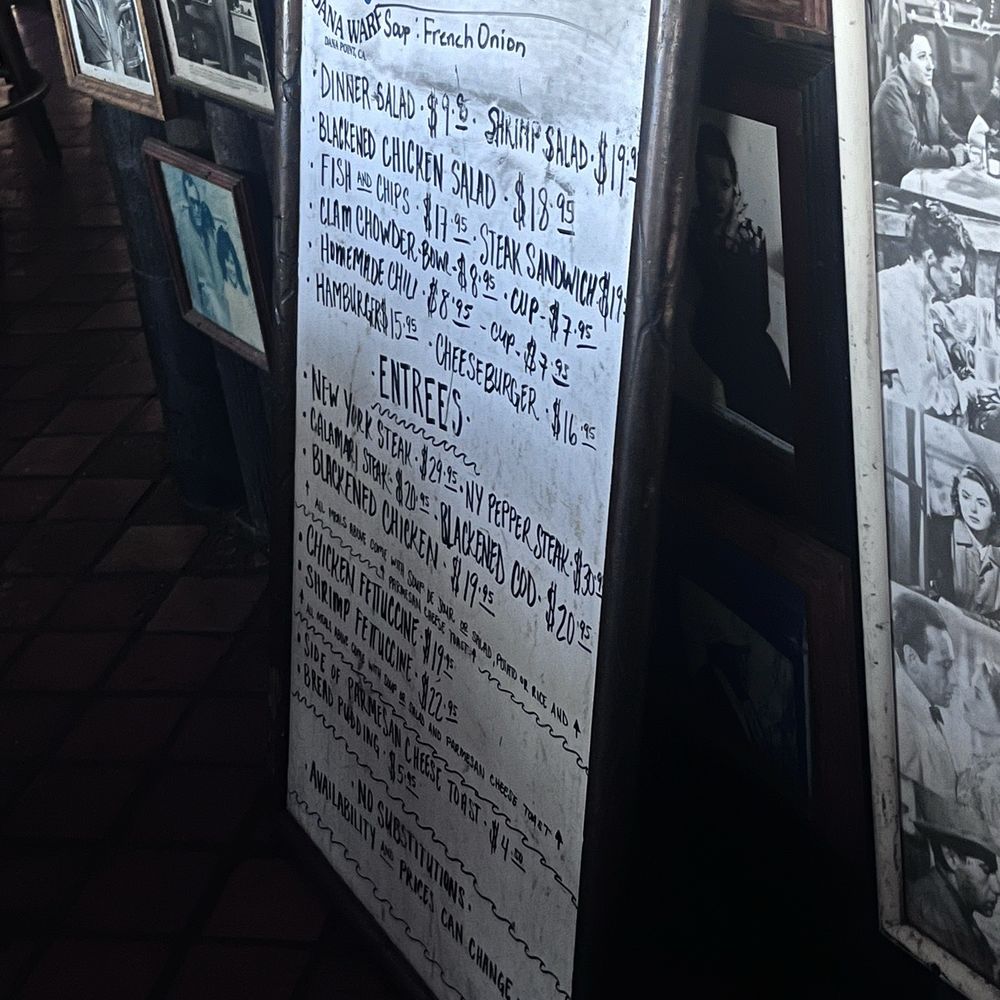 DANA WARF Soup: French Onion
DANA POINT, CA
• DINNER SALAD • $9.95 SHRIMP SALAD • $19.9
• BLACKENED CHICKEN SALAD • $18.95
• FISH AND CHIPS • $17.95 • STEAK SANDWICH $19.
• CLAM CHOWDER-BOWL-$8.95 • CUP-$7.95
• HOMEMADE CHILI • $8.95 - CUP-$7.95
• HAMBURGER $15.95 • CHEESEBURGER • $16.95
• ENTREE/S •
• NEW YORK STEAK • $29.95 • NY PEPPER STEAK • $30.9
• CALAMARI STEAK • $20.95 • BLACKENED COD • $20.95
• BLACKENED CHICKEN • $19.95
↑ ALL MEALS ABOVE COME WITH SOUP DE JOUR OR SALAD, POTATO OR RICE AND ↑
↑ PARMESAN CHEESE TOAST ↑
• CHICKEN FETTUCCINE • $19.95
• SHRIMP FETTUCCINE • $22.95
↑ ALL MEALS ABOVE COME WITH SOUP OR SALAD AND PARMESAN CHEESE TOAST ↑
• SIDE OF PARMESAN CHEESE TOAST • $4.50
• BREAD PUDDING • $5.95
• NO SUBSTITUTIONS •
• AVAILABILITY AND PRICES CAN CHANGE •